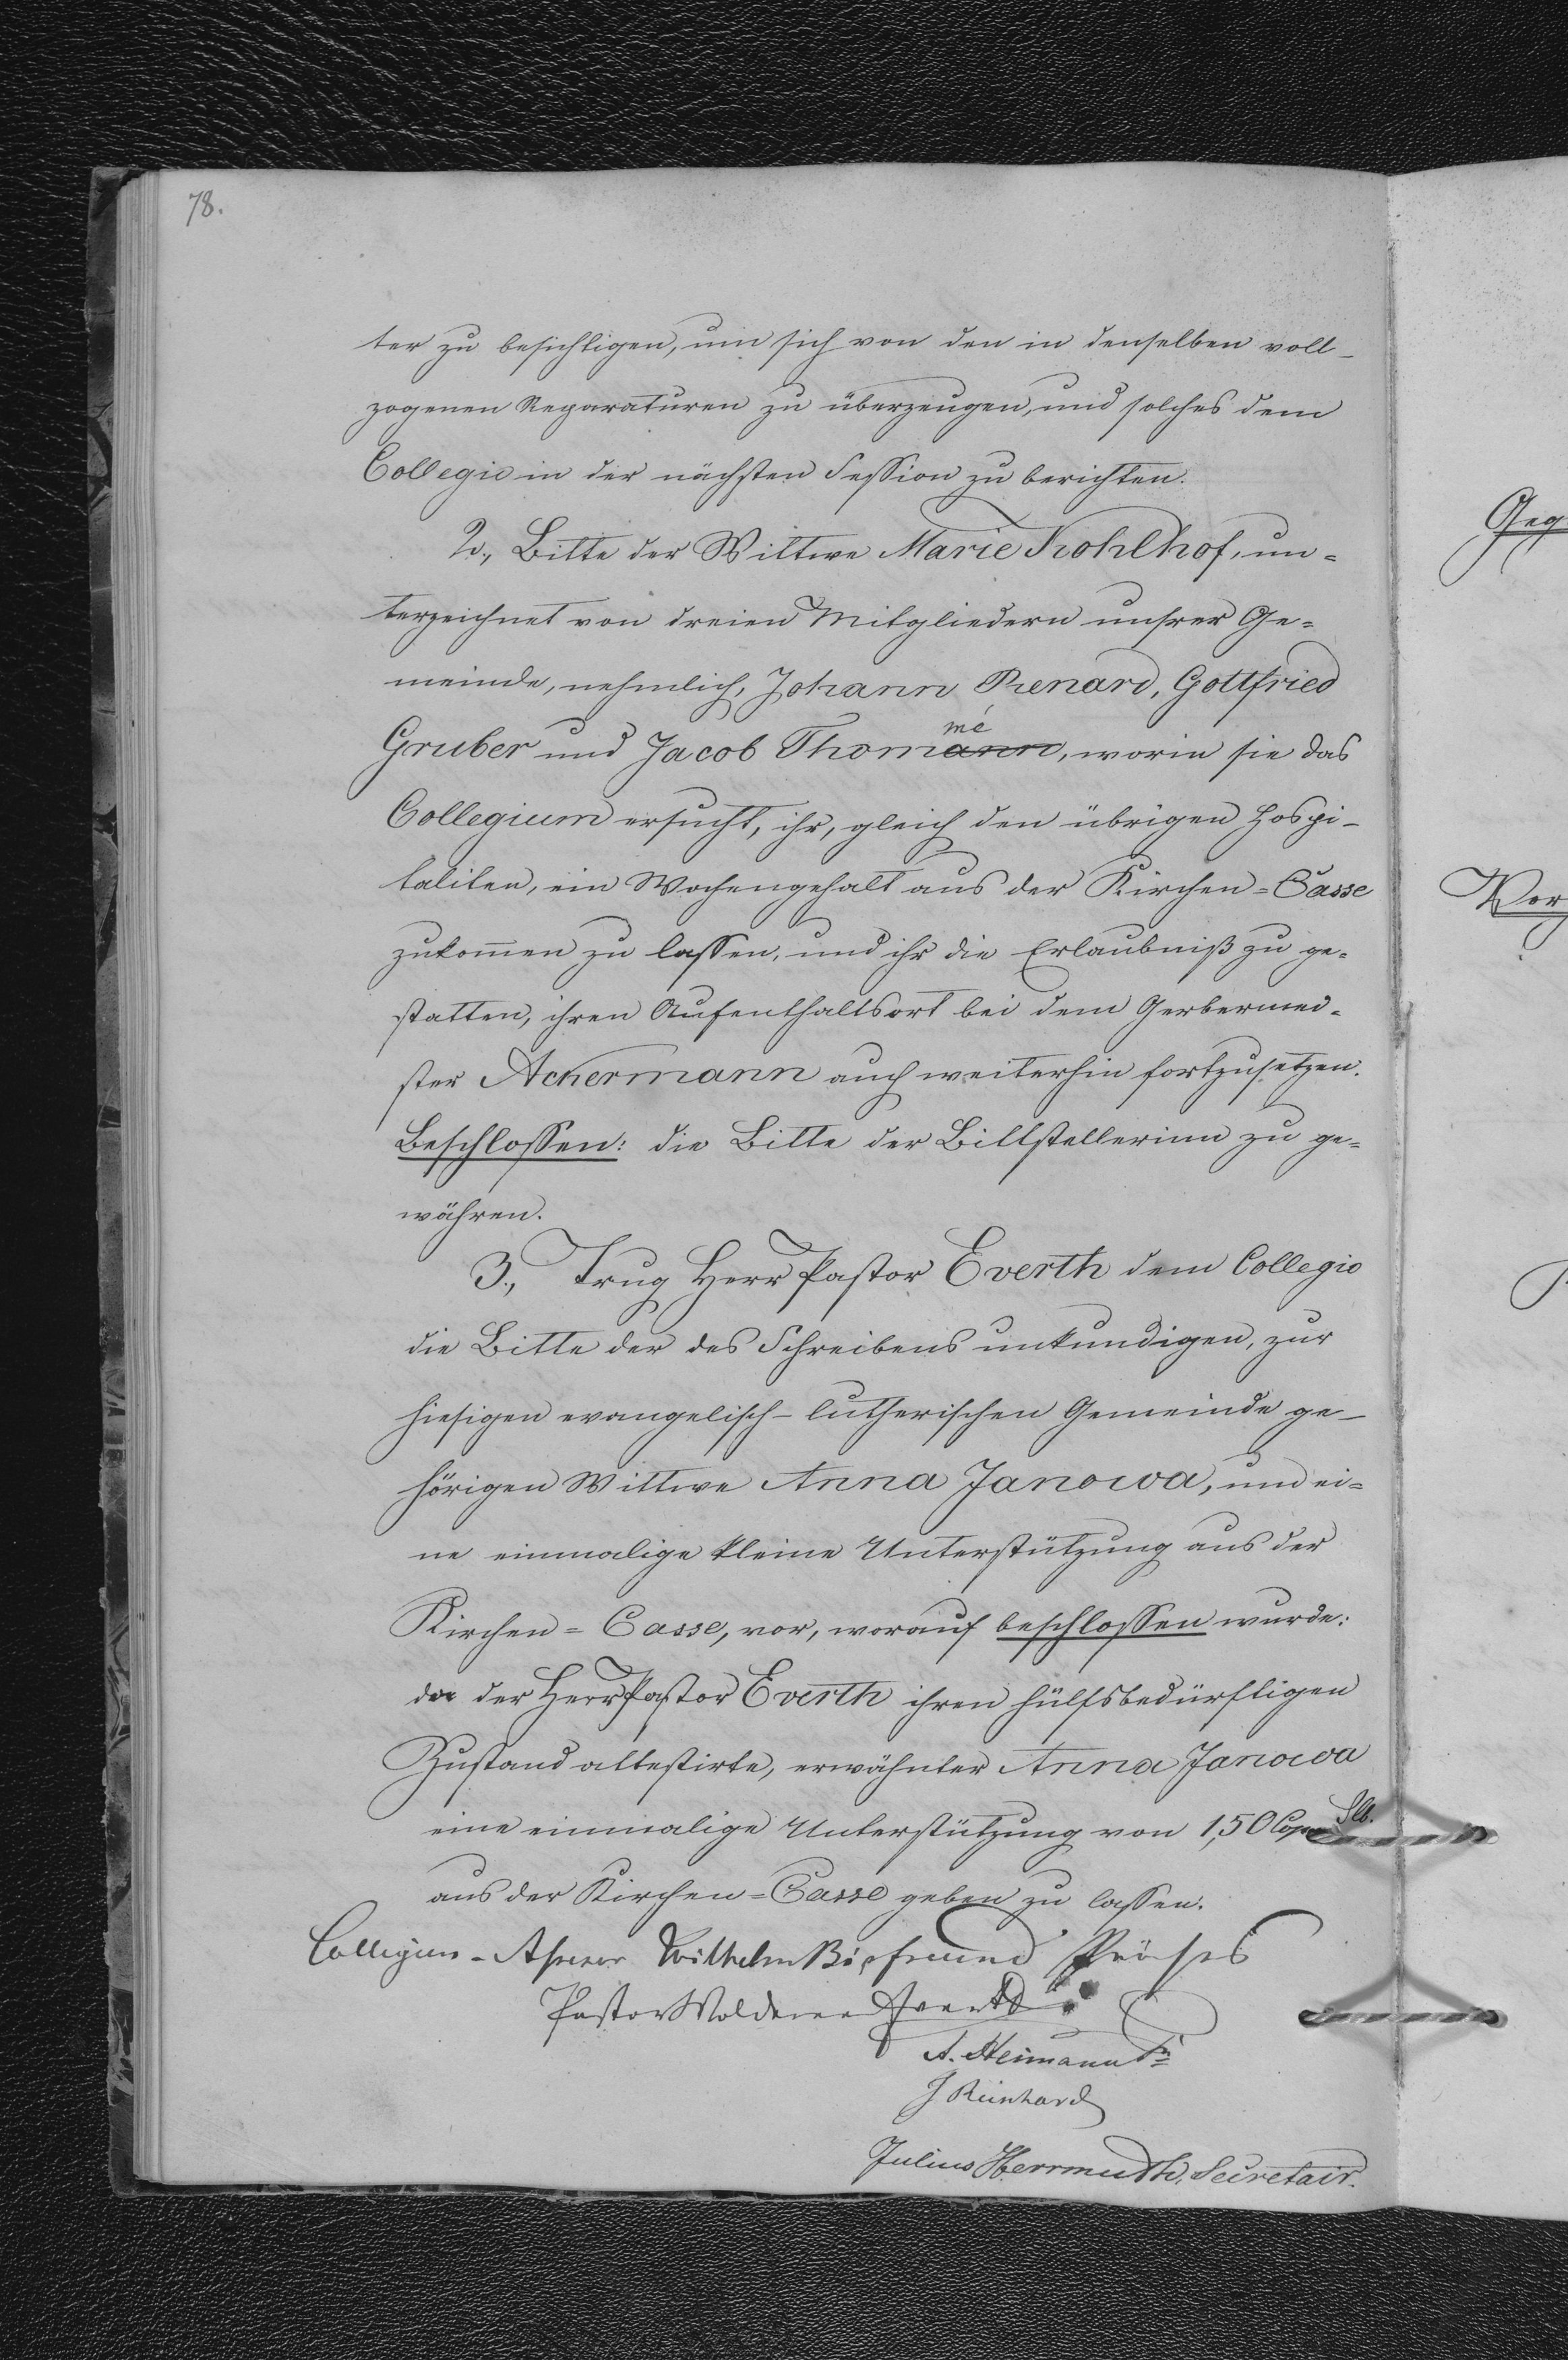 78.
ter zu besichtigen, um sich von den in denselben voll-
zogenen Reparaturen zu überzeugen, und solches dem
Collegio in der nächsten Session zu berichten.
2., Bitte der Wittwe Marie Kohlhof, un=
terzeichnet von dreien Mitgliedern unsrer Ge=
meinde, nehmlich, Johann Renard, Gottfried
mé
Gruber und Jacob Thomann, worin sie das
Collegium ersucht, ihr, gleich den übrigen Hospi-
taliten, ein Wochengehalt aus der Kirchen=Casse
zukom̄en zu lassen, und ihr die Erlaubniß zu ge=
statten, ihren Aufenthaltsort bei dem Gerbermei=
ster Ackermann auch weiterhin fortzusetzen.
Beschlossen: die Bitte der Bittstellerinn zu ge=
währen.
3., Trug Herr Pastor Everth dem Collegio
die Bitte der des Schreibens unkundigen, zur
hiesigen evangelisch-lutherischen Gemeinde ge-
hörigen Wittwe Anna Janowa, um ei=
ne einmalige kleine Unterstützung aus der
Kirchen=Casse, vor, worauf beschlossen wurde:
da der Herr Pastor Everth ihren hülfsbedürftigen
Zustand attestirte, erwähnter Anna Janowa
eine einmalige Unterstützung von 1,50 Cop. Slb.
aus der Kirchen=Casse geben zu lassen.
Collegien-Assessor Wilhelm Präses
Pastor Woldemar Everth
A. Heimann
J Reinhard
Julius Herrmuth, Secretair.
Geg
Vor